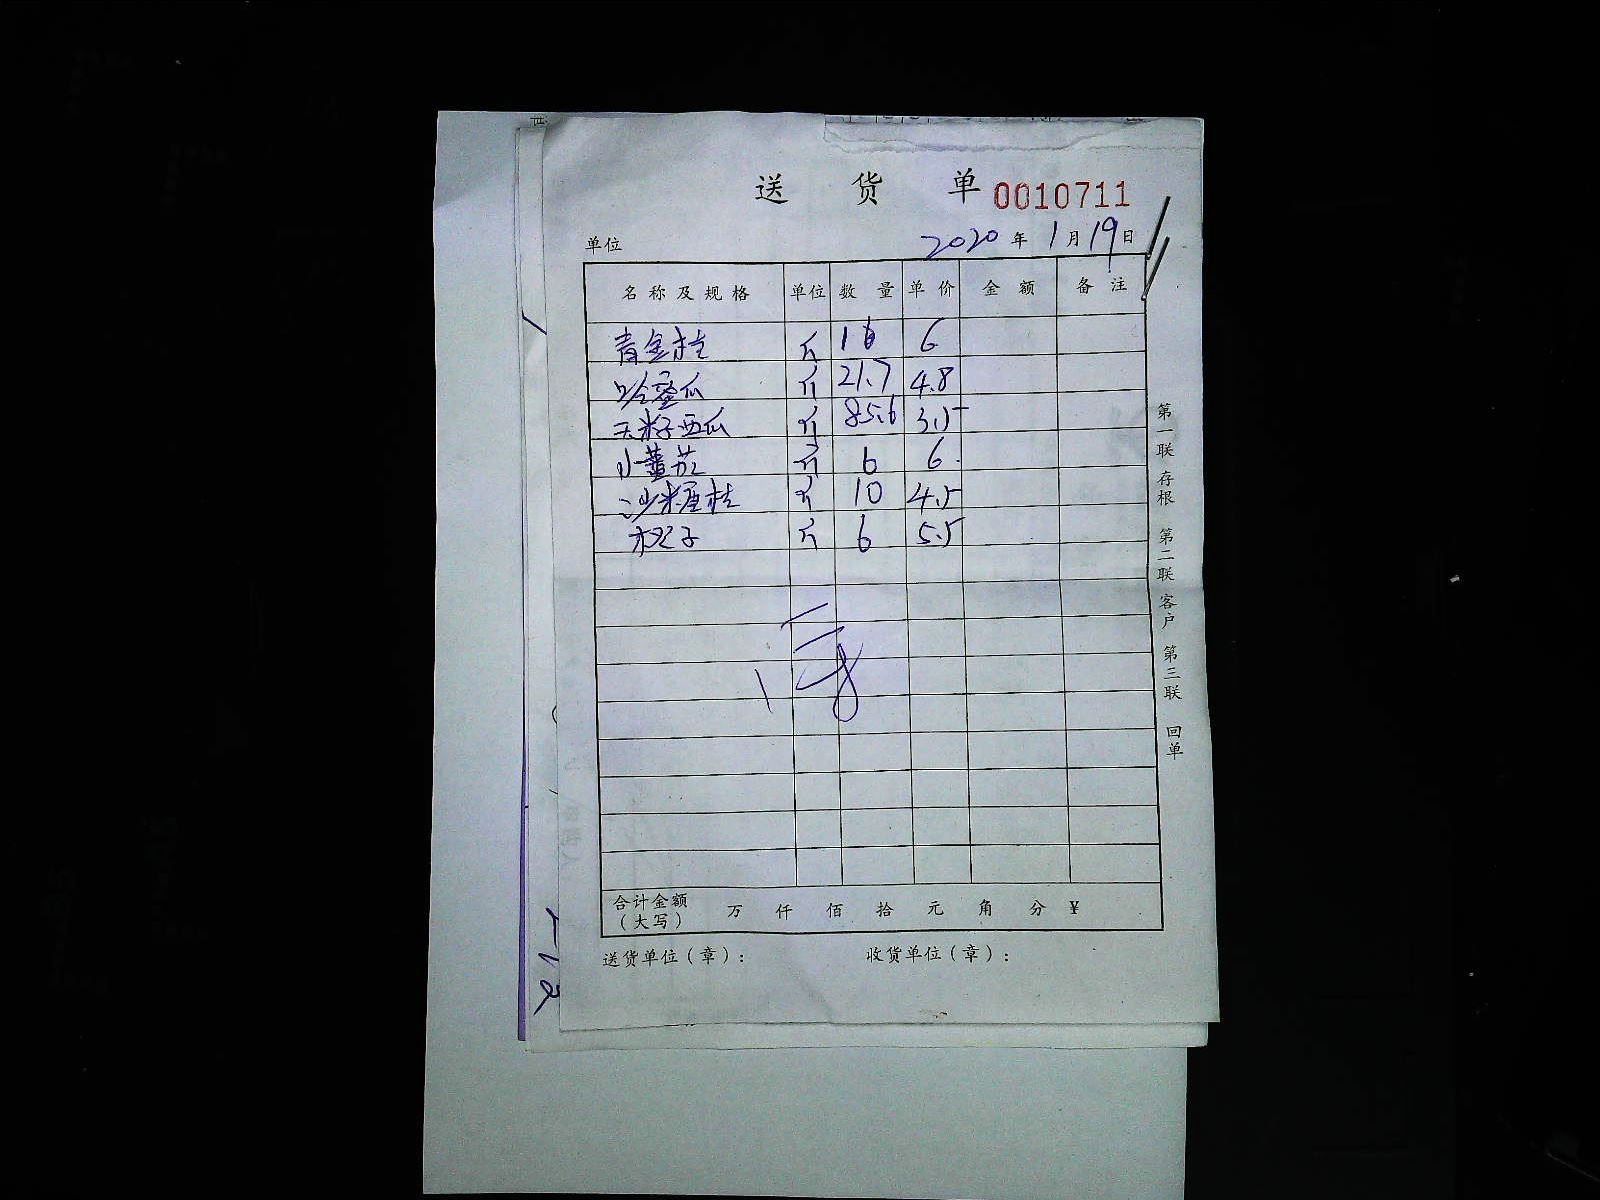 送 货 单 0010711
单位 2020 年 1 月 19 日
名称及规格 单位 数量 单价 金额 备注
青金桔 斤 16 6
哈蜜瓜 斤 21.7 4.8
无籽西瓜 斤 85.6 3.5
小蕃茄 斤 6 6.
沙糖桔 斤 10 4.5
橙子 斤 6 5.5
合计金额（大写） 万 仟 佰 拾 元 角 分 ¥
送货单位（章）： 收货单位（章）：
第一联 存根 第二联 客户 第三联 回单